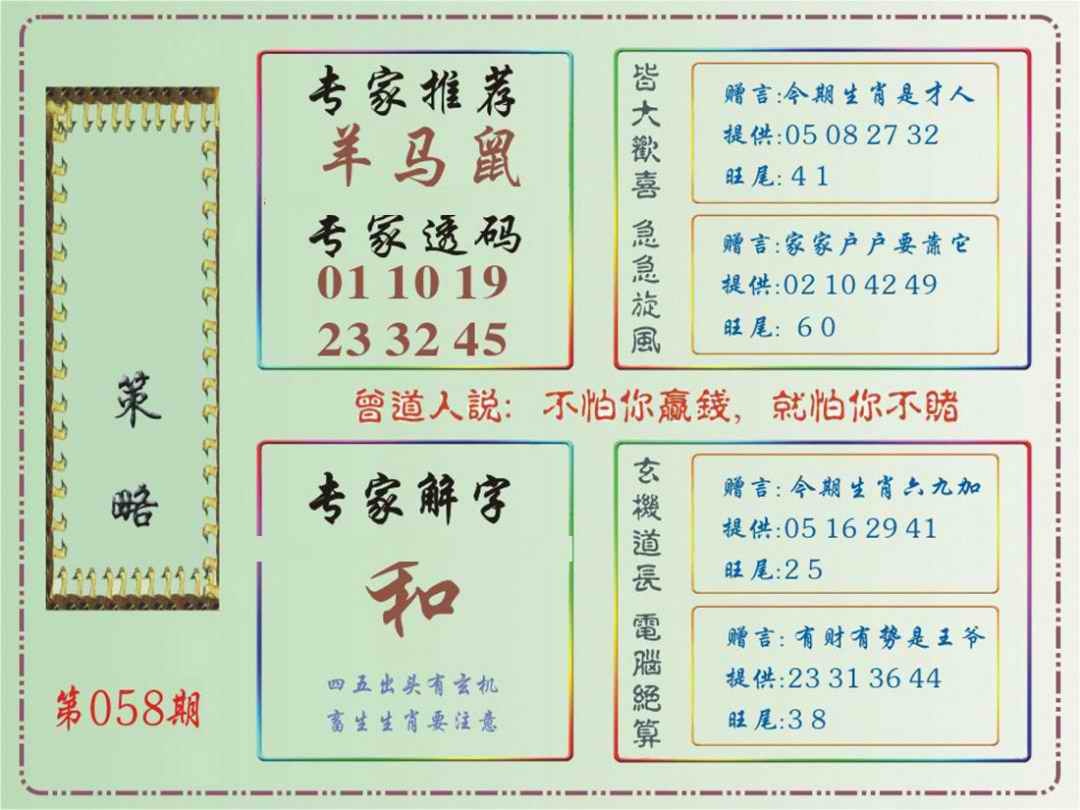 策
略
第058期
专家推荐
羊马鼠
专家透码
01 10 19
23 32 45
皆大歡喜
赠言:今期生肖是才人
提供:05 08 27 32
旺尾: 4 1
急急旋風
赠言:家家户户要靠它
提供:02 10 42 49
旺尾: 6 0
曾道人説: 不怕你贏錢, 就怕你不賭
专家解字
和
四五出头有玄机
畜生生肖要注意
玄機道長
赠言: 今期生肖六九加
提供:05 16 29 41
旺尾:2 5
電腦絕算
赠言: 有财有势是王爷
提供:23 31 36 44
旺尾:3 8